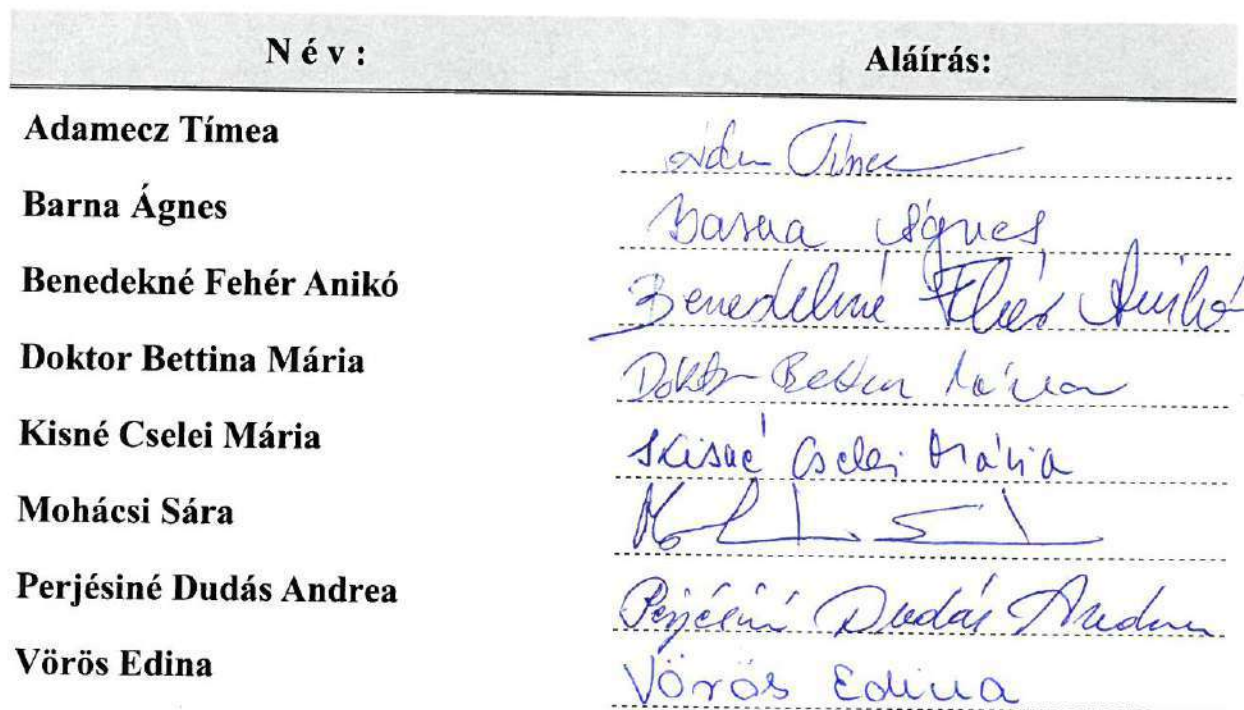 Név: Aláírás:
Adamecz Tímea Tímea
Barna Ágnes Barna Ágnes
Benedekné Fehér Anikó Benedekné Fehér Anikó
Doktor Bettina Mária Doktor Bettina Mária
Kisné Cselei Mária Kisné Cselei Mária
Mohácsi Sára
Perjésiné Dudás Andrea Perjésiné Dudás Andrea
Vörös Edina Vörös Edina